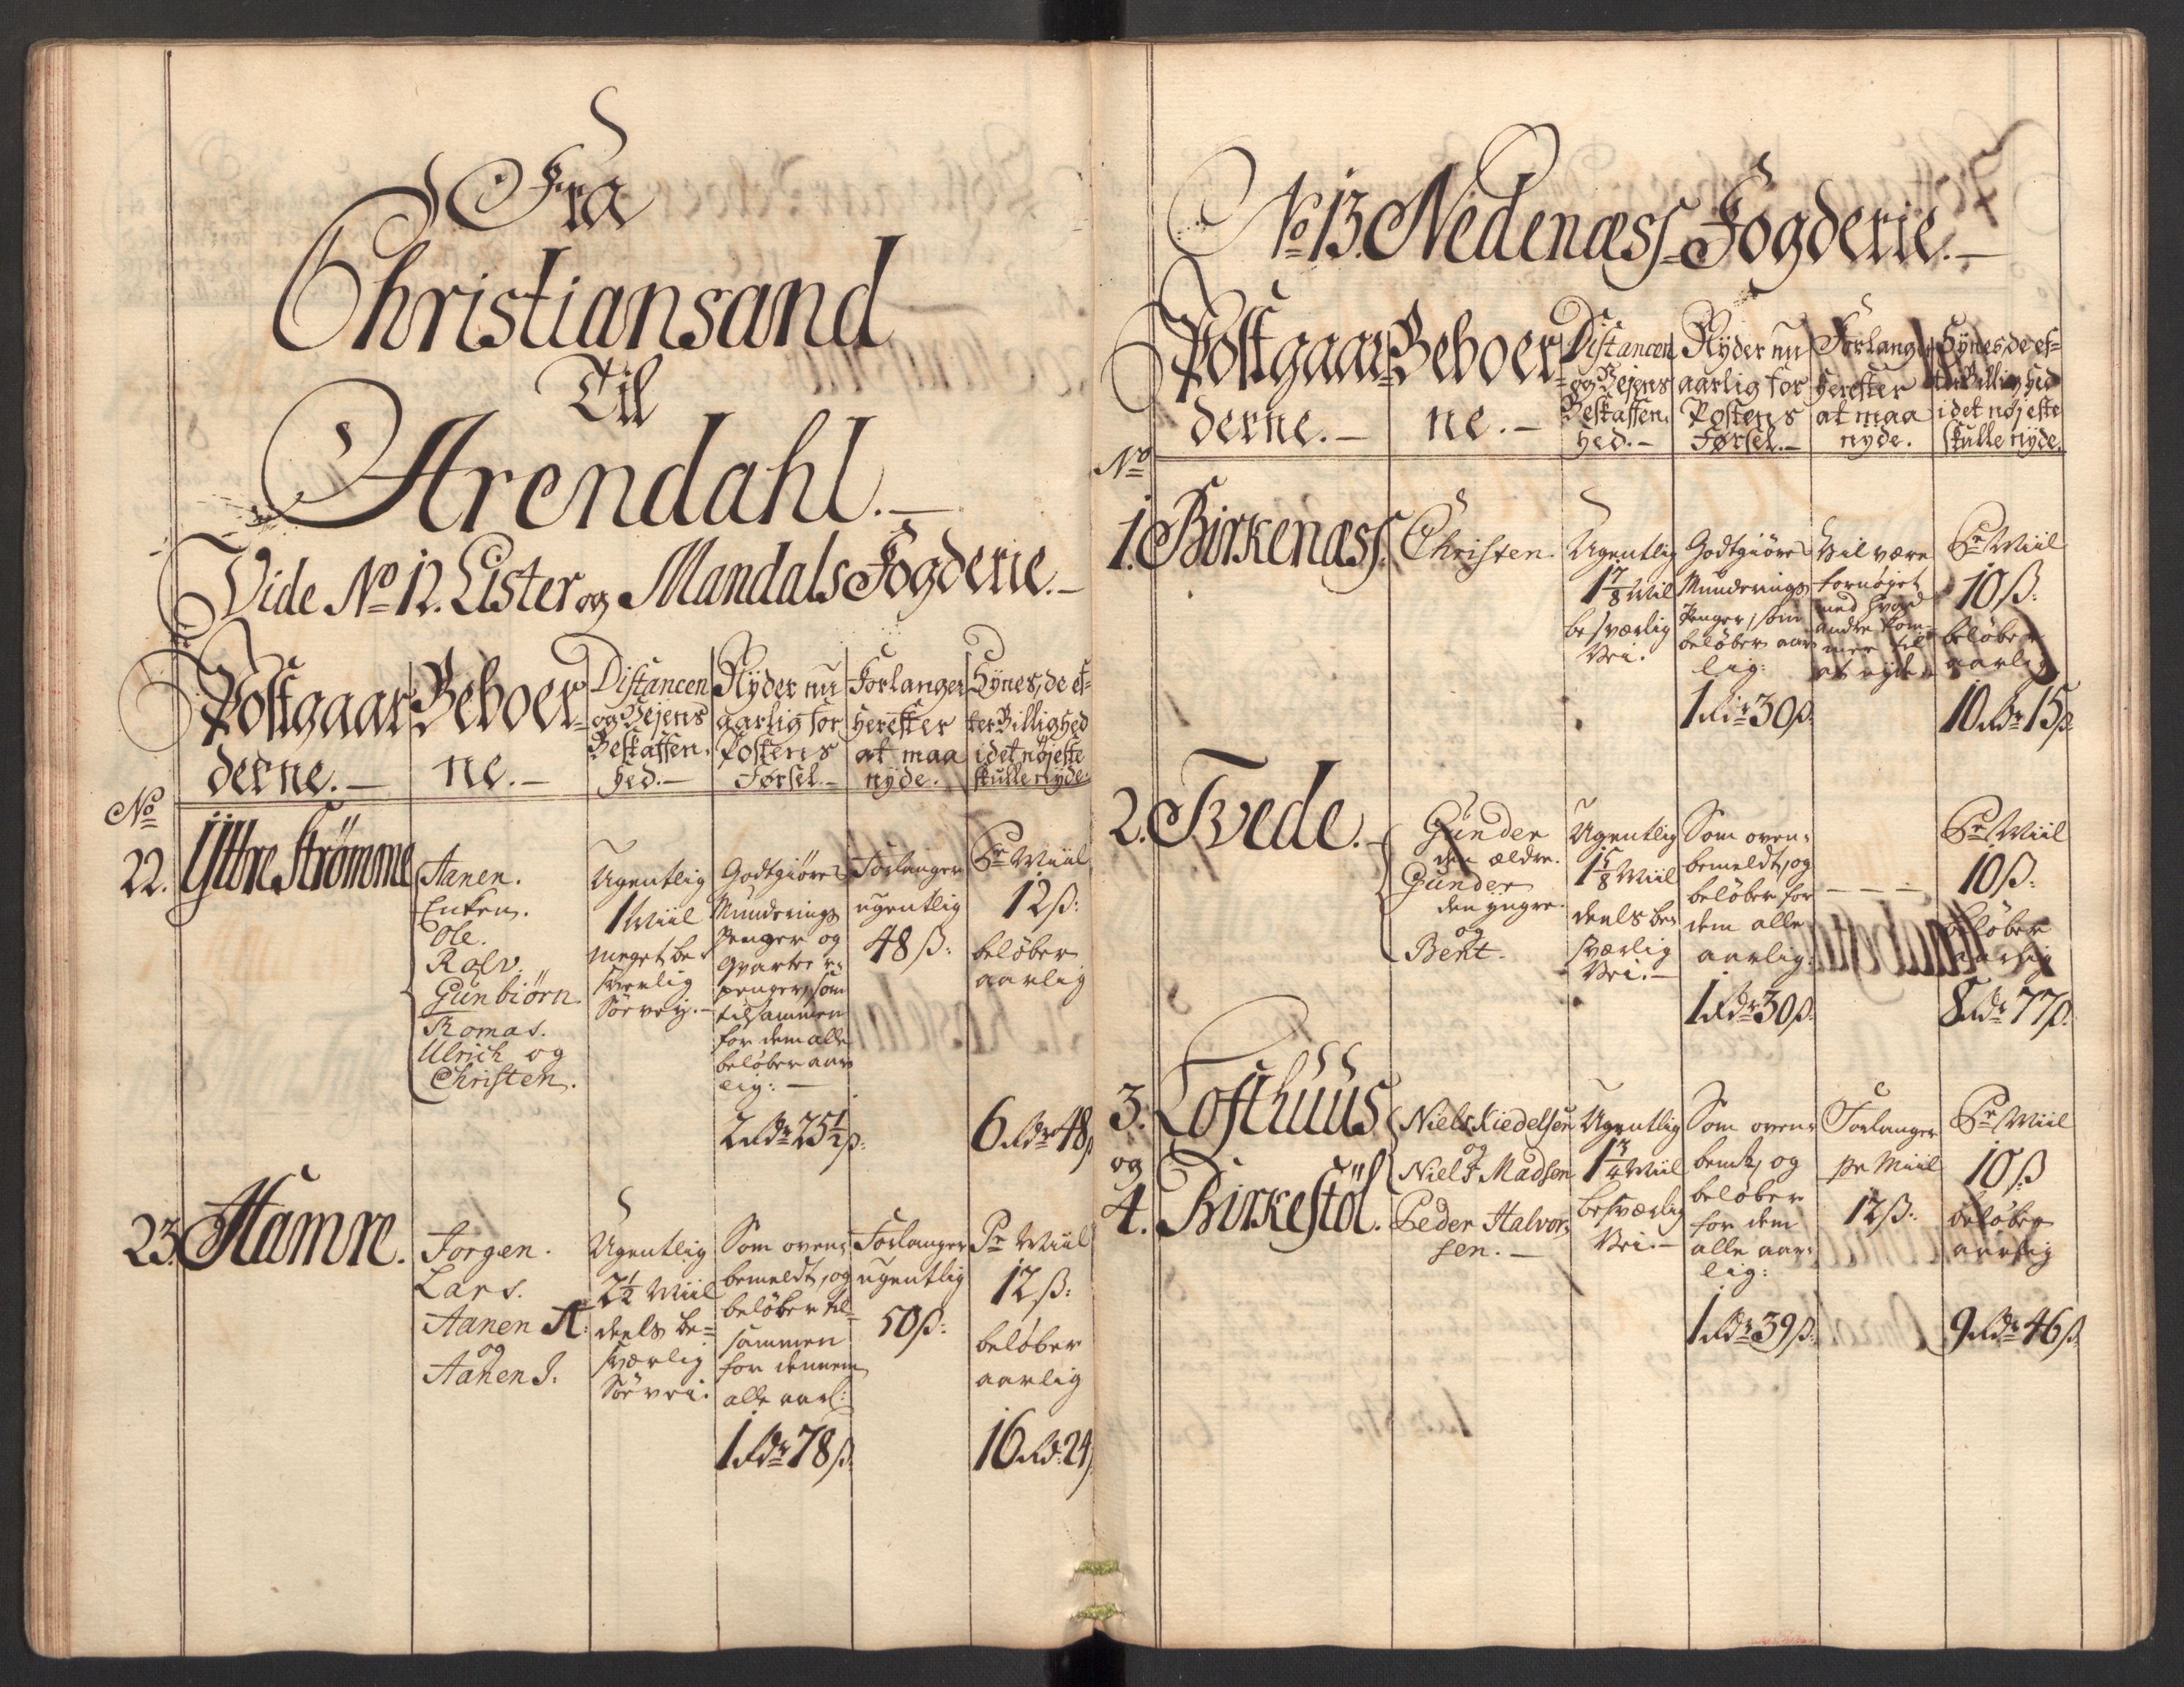 Fra
Christiansand
Til
Arendahl.
Vide No 12. Lister og Mandals Fogderie.
Postgaar= Beboer= Distancen Nyder nu Forlanger Synes, de ef=
og Vejens aarlig for herefter ter Billighed
Beskaffen= Postens at maa i det nøjeste
derne. ne. hed. Førsel. nyde. skulle nyde.
No
22. Ÿttre Strömme
Aanen.
Enken.
Ole.
Rolv.
Gunbiörn.
Romas.
Ulrich og
Christen.
Ugentlig
1 Miil
meget be=
sværlig
Söe vej.
Godtgiöres
Munderings
Penger og
Qvarteer=
penger, som
tilsammen
for dem alle
beløber aar=
lig:
2 Rdr 25½ ß:
Forlanger
ugentlig
48 ß:
Pr Miil
12 ß:
beløber
aarlig
6 Rdr 48 ß
23. Hamre.
Jørgen.
Lars.
Aanen A:
og
Aanen J.
Ugentlig
2½ Miil
deels be=
sværlig
Söe vei.
Som oven=
bemeldt, og
beløber til=
sammen
for dennem
alle aarl:
1 Rdr 78 ß.
Forlanger
ugentlig
50 ß:
Pr Miil
12 ß:
beløber
aarlig
16 Rd: 24 ß
No 13. Nedenæss Fogderie.
Postgaar= Beboer= Distancen Nyder nu Forlanger Synes, de ef=
og Vejens aarlig for herefter ter Billighed
Beskaffen= Postens at maa i det nøjeste
derne. ne. hed. Førsel. nyde. skulle nyde.
No
1. Birkenæss.
Christen.
Ugentlig
1 7/8 Miil
besværlig
Vei.
Godtgiöres
Munderings
Penger, som
beløber aar=
lig:
1 Rdr 30 ß.
Vil være
fornøjet
med hvad
andre kom=
mer til
at nyde.
Pr Miil
10 ß:
beløber
aarlig
10 Rdr 15 ß
2. Tvede.
Gunder
den ældre.
Gunder
den yngre.
og
Bent.
Ugentlig
1 5/8 Miil
deels be=
sværlig
Vei.
Som oven=
bemeldt, og
beløber for
dem alle
aarlig:
1 Rdr 30 ß.
Pr Miil
10 ß:
beløber
aarlig
8 Rdr 77 ß.
3. Lofthuus
og
4. Birkestöl.
Niels Kiedelsen
og
Niels Madsen
Peder Halvor=
sen.
Ugentlig
1 3/4 Miil
besværlig
Vei.
Som oven=
bemt, og
beløber
for dem
alle aar=
lig:
1 Rdr 39 ß.
Forlanger
pr Miil
12 ß:
Pr Miil
10 ß
beløber
aarlig
9 Rdr 46 ß.